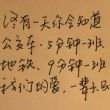 没有一天你会知道
公交车·5分钟一班
地铁·9分钟一班
我们的爱·一辈只